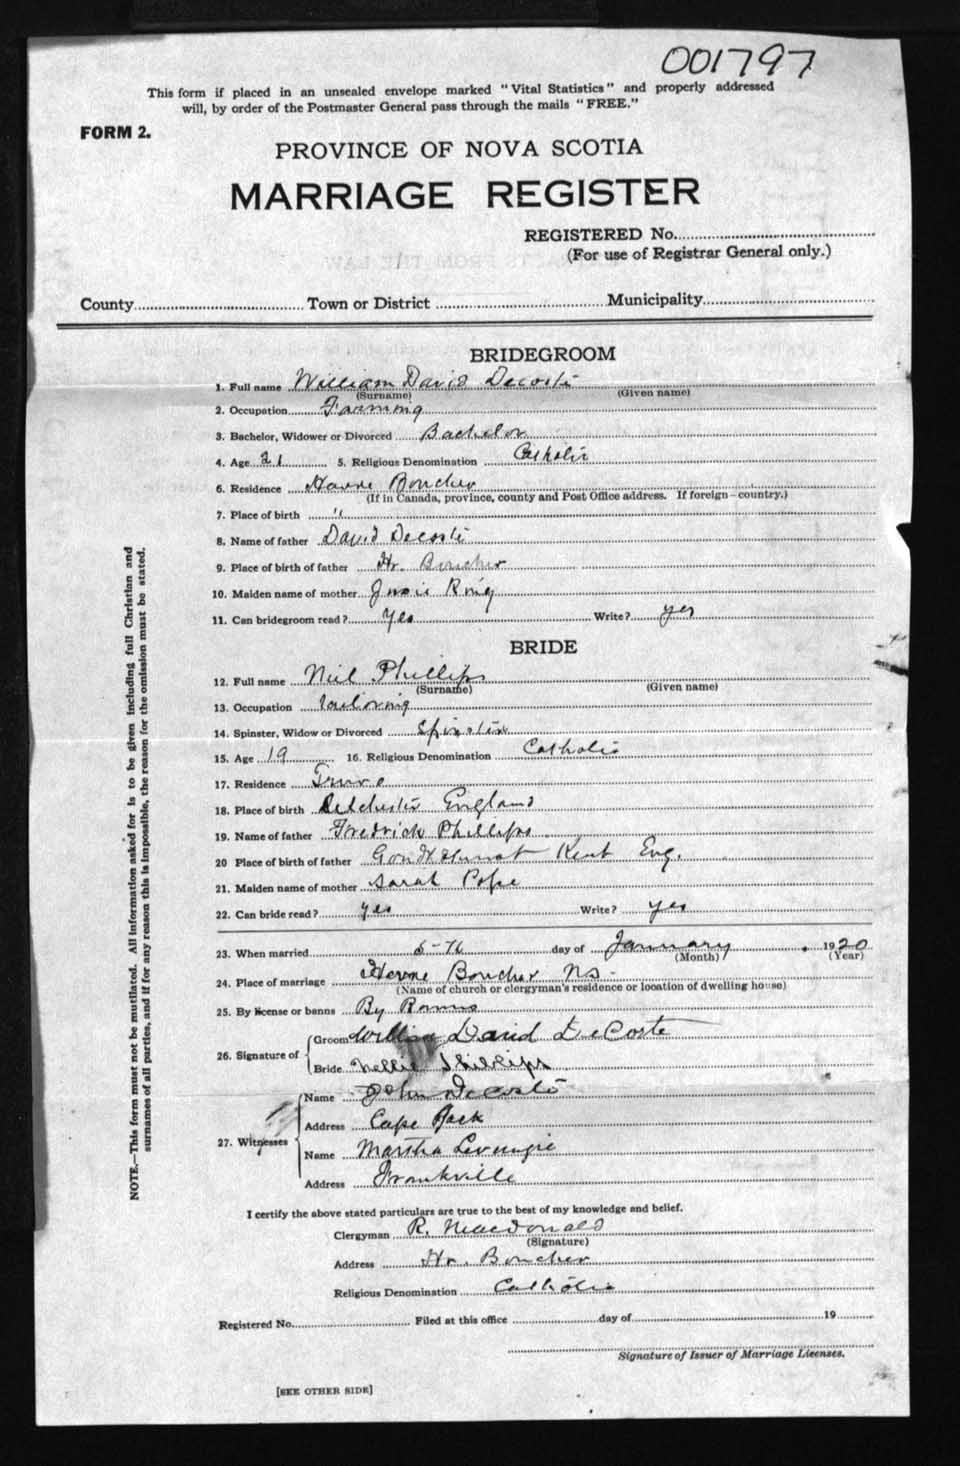 001797
This form if placed in an unsealed envelope marked "Vital Statistics" and properly addressed
will, by order of the Postmaster General pass through the mails "FREE."
FORM 2.
PROVINCE OF NOVA SCOTIA
MARRIAGE REGISTER
REGISTERED No.
(For use of Registrar General only.)
County Town or District Municipality
BRIDEGROOM
1. Full name William David Decoste
(Surname) (Given name)
2. Occupation Farming
3. Bachelor, Widower or Divorced Bachelor
4. Age 21 5. Religious Denomination Catholic
6. Residence Havre Boucher
(If in Canada, province, county and Post Office address. If foreign—country.)
7. Place of birth "
8. Name of father David Decoste
9. Place of birth of father Hr. Boucher
10. Maiden name of mother King
11. Can bridegroom read? Yes Write? yes
BRIDE
12. Full name Phillips
(Surname) (Given name)
13. Occupation tailoring
14. Spinster, Widow or Divorced Spinster
15. Age 19 16. Religious Denomination Catholic
17. Residence Truro
18. Place of birth England
19. Name of father Fredrick Phillips
20 Place of birth of father Kent Eng.
21. Maiden name of mother Sarah Pope
22. Can bride read? yes Write? yes
23. When married 6-th day of January 1920
(Month) (Year)
24. Place of marriage Havre Boucher NS-
(Name of church or clergyman's residence or location of dwelling house)
25. By license or banns By Banns
26. Signature of Groom William David DeCoste
Bride Nellie Phillips
27. Witnesses
Name John Decoste
Address Cape Jack
Name Martha Levangie
Address Frankville
I certify the above stated particulars are true to the best of my knowledge and belief.
Clergyman R. Macdonald
(Signature)
Address Hr. Boucher
Religious Denomination Catholic
Registered No. Filed at this office day of 19
Signature of Issuer of Marriage Licenses.
[SEE OTHER SIDE]
NOTE.—This form must not be mutilated. All information asked for is to be given including full Christian and
surnames of all parties, and if for any reason this is impossible, the reason for the omission must be stated.